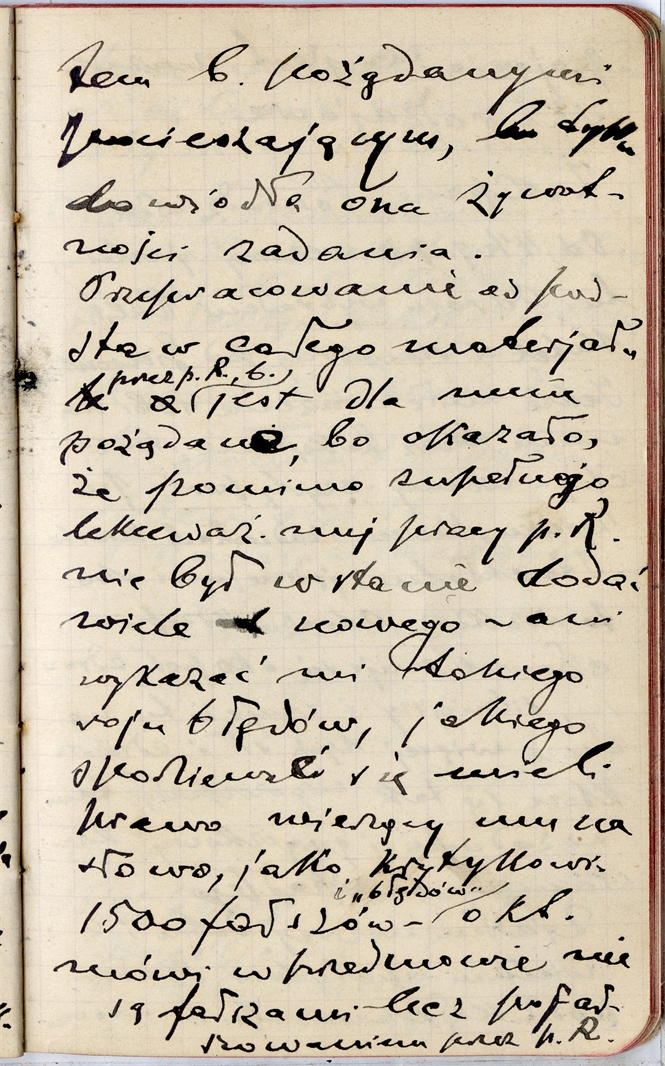 tem b. pożądanym i
pocieszającym, bo tylko
dowiodła ona żywot-
ności zadania.
Przepracowanie od pod-
staw całego materjału
przez p. R., b.
jest dla mnie
pożądane, bo okazało,
że pomimo zupełnego
lekceważ. mej pracy p. R.
nie był w stanie dodać
wiele nowego – ani
wykazać mi takiego
roju błędów, jakiego
spodziewać się mieli
prawo wierzący mu na
słowo, jako krytykowi
i „błędów"
1500 fałszów – o kt.
mówi w przedmowie nie
są fałszami lecz pofał-
szowaniem przez p. R.